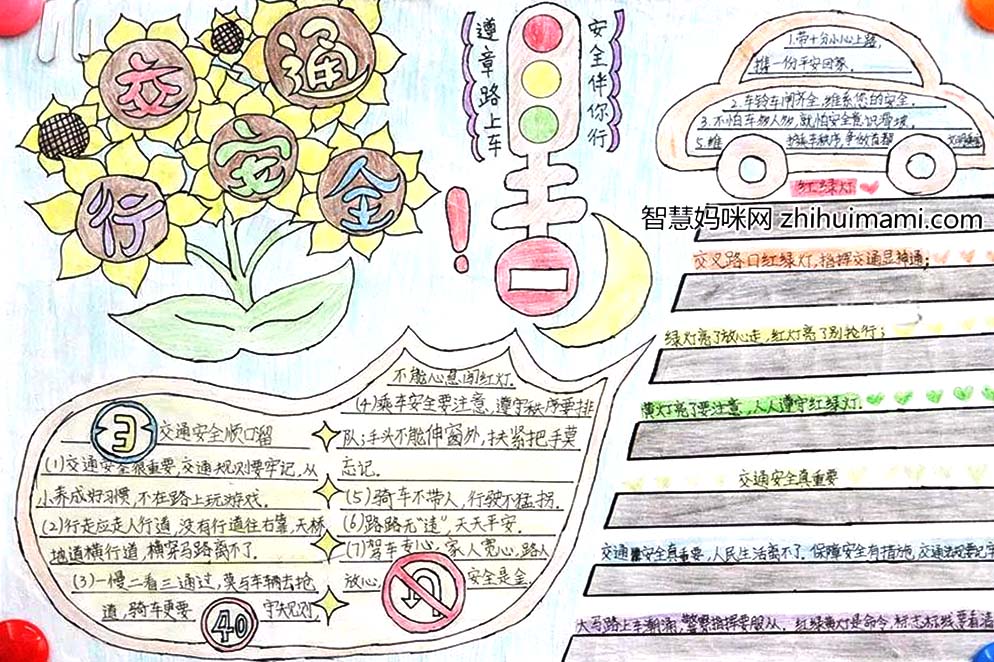 交通
安全
行
遵章路上车
安全伴你行
1.带十分小心上路,
携一份平安回家.
2.车铃车闸齐全,维系您的安全.
3.不怕车多人多,就怕安全意识滑坡.
5.维
红绿灯
智慧妈咪网 zhihuimami.com
交叉路口红绿灯,指挥交通显神通;
绿灯亮了放心走,红灯亮了别抢行;
黄灯亮了要注意,人人遵守红绿灯.
交通安全真重要
交通安全真重要,人民生活离不了,保障安全有措施,交通法规要记牢
大马路上车潮涌,警察指挥要服从,红绿黄灯是命令,标志标线要看清
3 交通安全顺口留
(1)交通安全很重要,交通规则要牢记,从
小养成好习惯,不在路上玩游戏.
(2)行走应走人行道,没有行道往右靠,天桥
地道横行道,横穿马路离不了.
(3)一慢二看三通过,莫与车辆去抢
道,骑车更要 守规则,
40
不能心急闯红灯.
(4)乘车安全要注意,遵守秩序要排
队;手头不能伸窗外,扶紧把手莫
忘记.
(5)骑车不带人,行驶不猛拐.
(6)路路无“违”,天天平安.
(7)驾车专心,家人宽心,路人
放心, 安全是金.